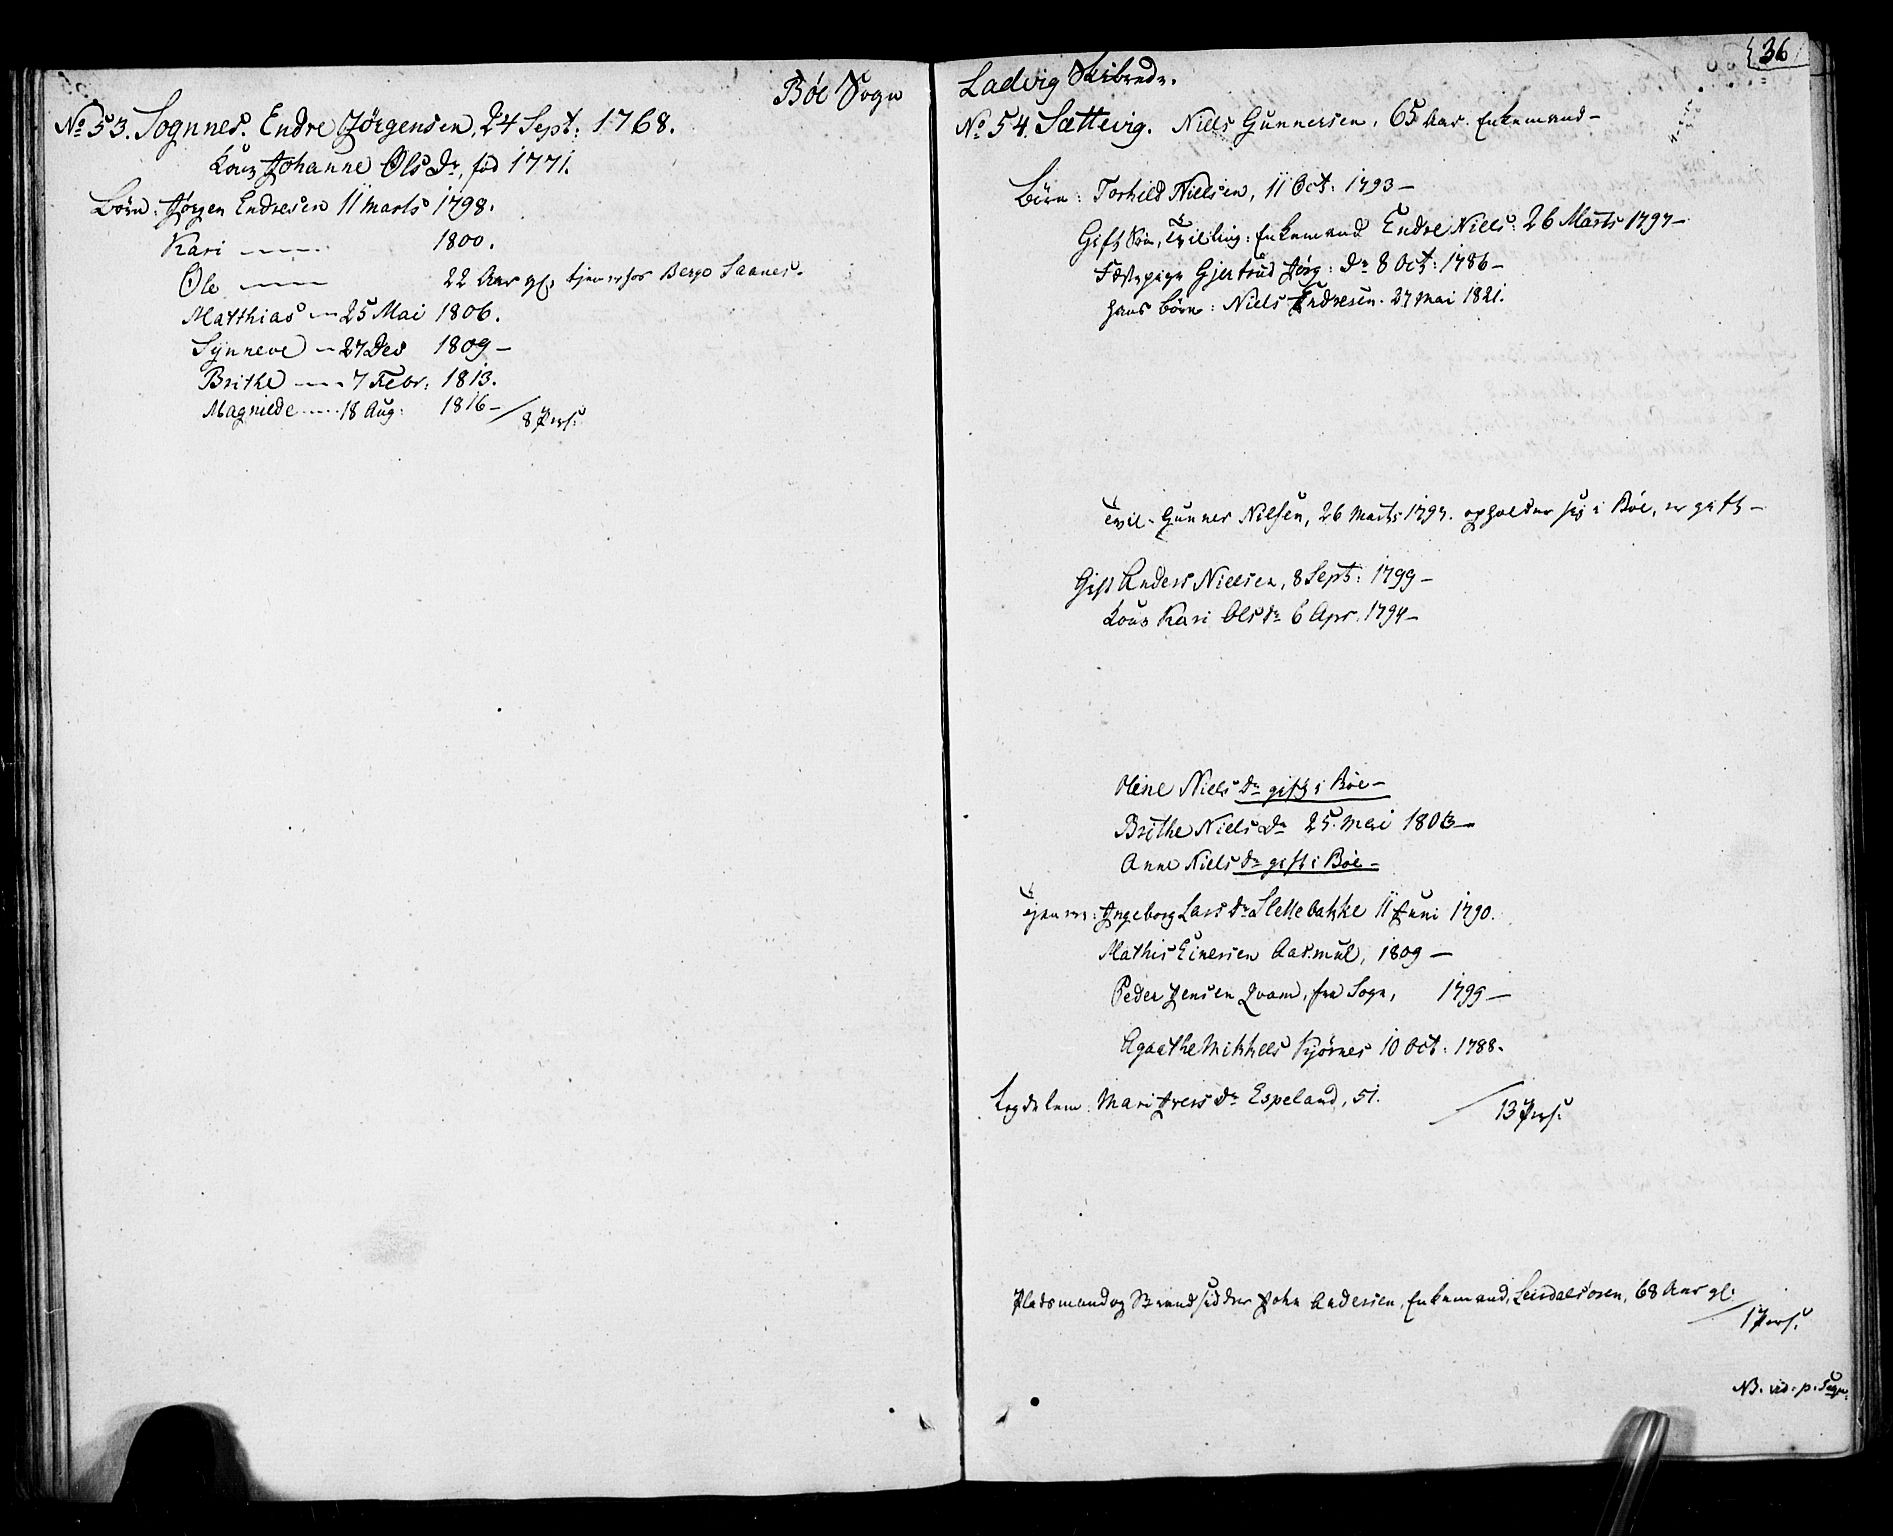 Bøe Sogn
No 53. Sognnes. Endre Jørgensen, 24 Sept: 1768.
Kone Johanne Ols Dr, fød 1771.
Børn: Jørgen Endresen 11 Marts 1798.
Kari —— 1800.
Ole —— 22 Aar gl. tjener hos Berge Saanes.
Matthias — 25 Mai 1806.
Synneve — 27 Des 1809 —
Brithe —— 7 Febr: 1813.
Magnilde —— 18 Aug: 1816 —
8 Pers:
36
Ladvig Skibrede.
No 54. Sættevig. Niels Gunnersen, 65 Aar. Enkemand —
Børn: Torhild Nielsen, 11 Oct: 1793 —
Gift Søn, Tvilling: Enkemand Endre Niels: 26 Marts 1797 —
Fæstepige Gjertrud Jørg: Dr 8 Oct: 1786 —
hans børn: Niels Endresen. 27 Mai 1821.
Tvil- Gunner Nilsen, 26 Marts 1797. opholder sig i Bøe, er gift —
Gift Anders Nielsen, 8 Sept: 1799 —
Kone Kari Ols dr 6 Apr. 1794 —
Oline Niels Dr gift i Bøe —
Brithe Niels Dr 25. Mai 1803 —
Anne Niels Dr gift i Bøe —
Tjenere: Ingeborg Lars Dr Slettebakke 11 Juni 1790.
Mathis Einersen Aasmul, 1809 —
Peder Jensen Qvam, fra Sogn, 1799 —
Agaathe Mikkels Kjørnes 10 Oct: 1788.
Legdelem: Mari Ivers Dr Espeland, 51.
13 Pers:
Pladsmand og Strandsidder John Andersen, Enkemand, Leirdalsøren, 68 Aar gl:
1 Pers:
NB. vid. p.